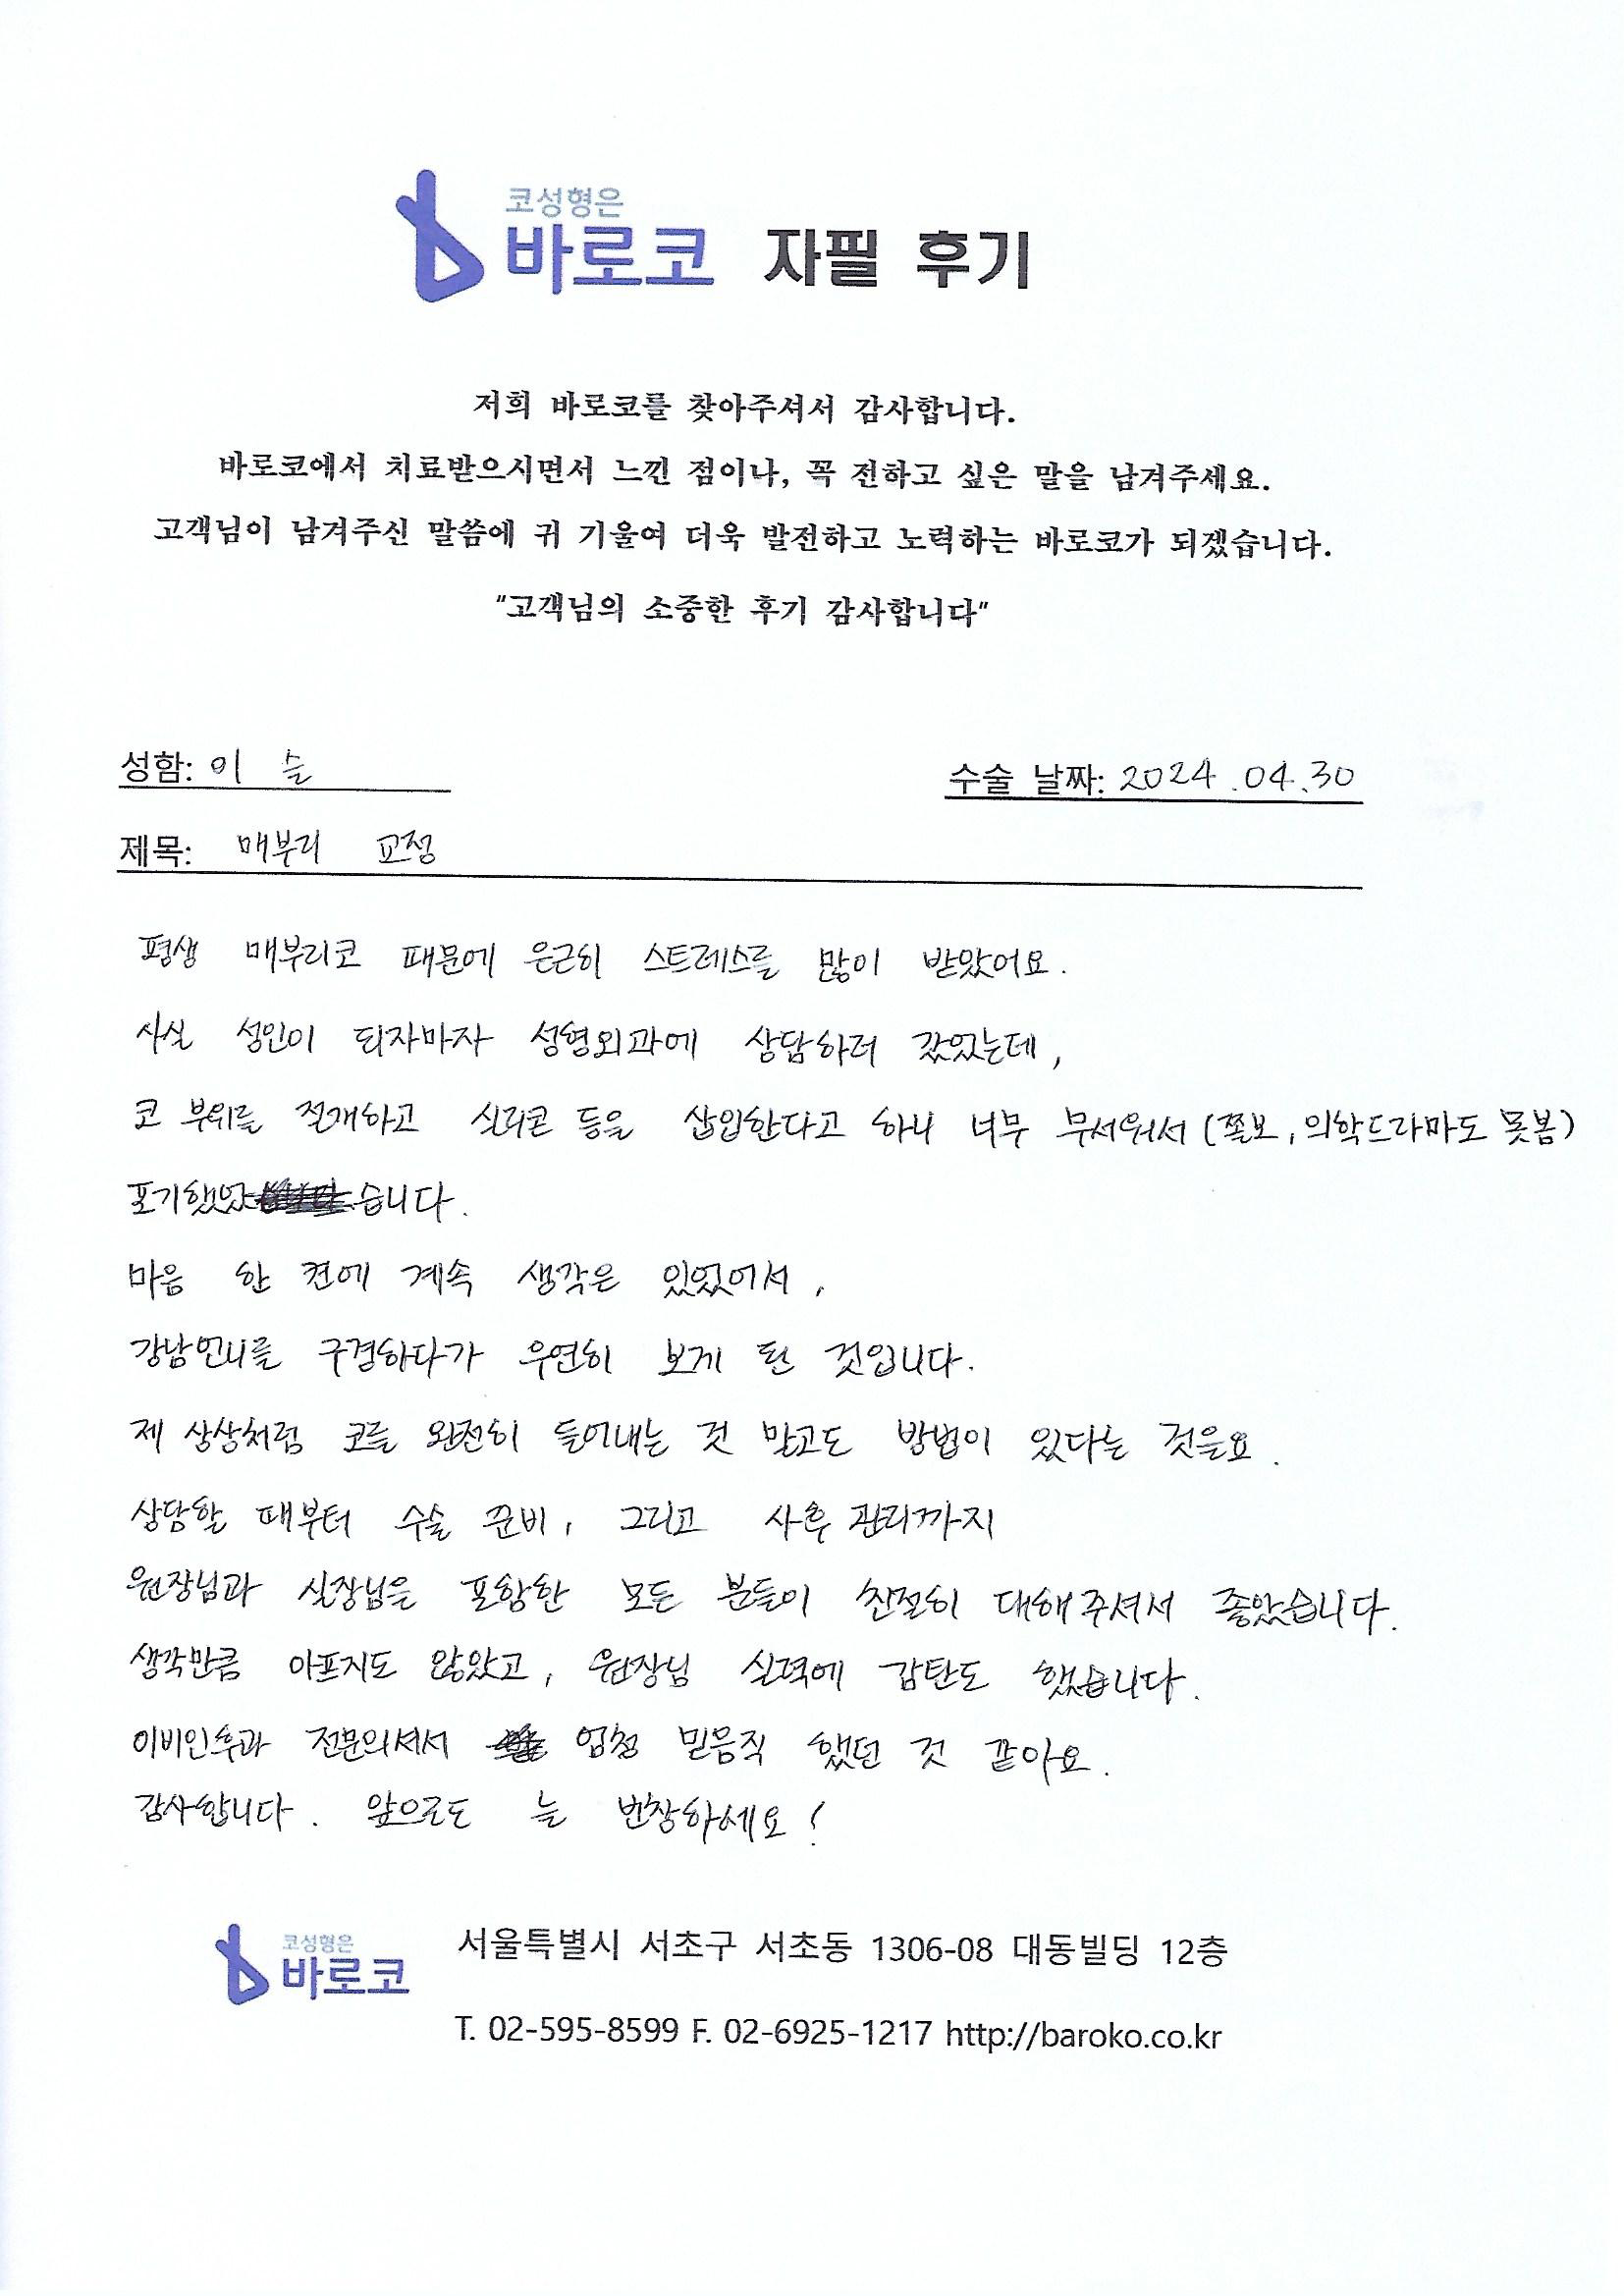 코성형은
바로코 자필 후기
저희 바로코를 찾아주셔서 감사합니다.
바로코에서 치료받으시면서 느낀 점이나, 꼭 전하고 싶은 말을 남겨주세요.
고객님이 남겨주신 말씀에 귀 기울여 더욱 발전하고 노력하는 바로코가 되겠습니다.
"고객님의 소중한 후기 감사합니다"
성함: 이 슬 수술 날짜: 2024.04.30
제목: 매부리 교정
평생 매부리코 때문에 은근히 스트레스를 많이 받았어요.
사실 성인이 되자마자 성형외과에 상담하러 갔었는데,
코 부위를 절개하고 실리콘 등을 삽입한다고 하니 너무 무서워서 (쫄보, 의학드라마도 못봄)
포기했었습니다.
마음 한 켠에 계속 생각은 있었어서,
강남언니를 구경하다가 우연히 보게 된 것입니다.
제 상상처럼 코를 완전히 들어내는 것 말고도 방법이 있다는 것을요.
상담할 때부터 수술 준비, 그리고 사후 관리까지
원장님과 실장님을 포함한 모든 분들이 친절히 대해주셔서 좋았습니다.
생각만큼 아프지도 않았고, 원장님 실력에 감탄도 했습니다.
이비인후과 전문의셔서 엄청 믿음직 했던 것 같아요.
감사합니다. 앞으로도 늘 번창하세요!
코성형은
바로코
서울특별시 서초구 서초동 1306-08 대동빌딩 12층
T. 02-595-8599 F. 02-6925-1217 http://baroko.co.kr